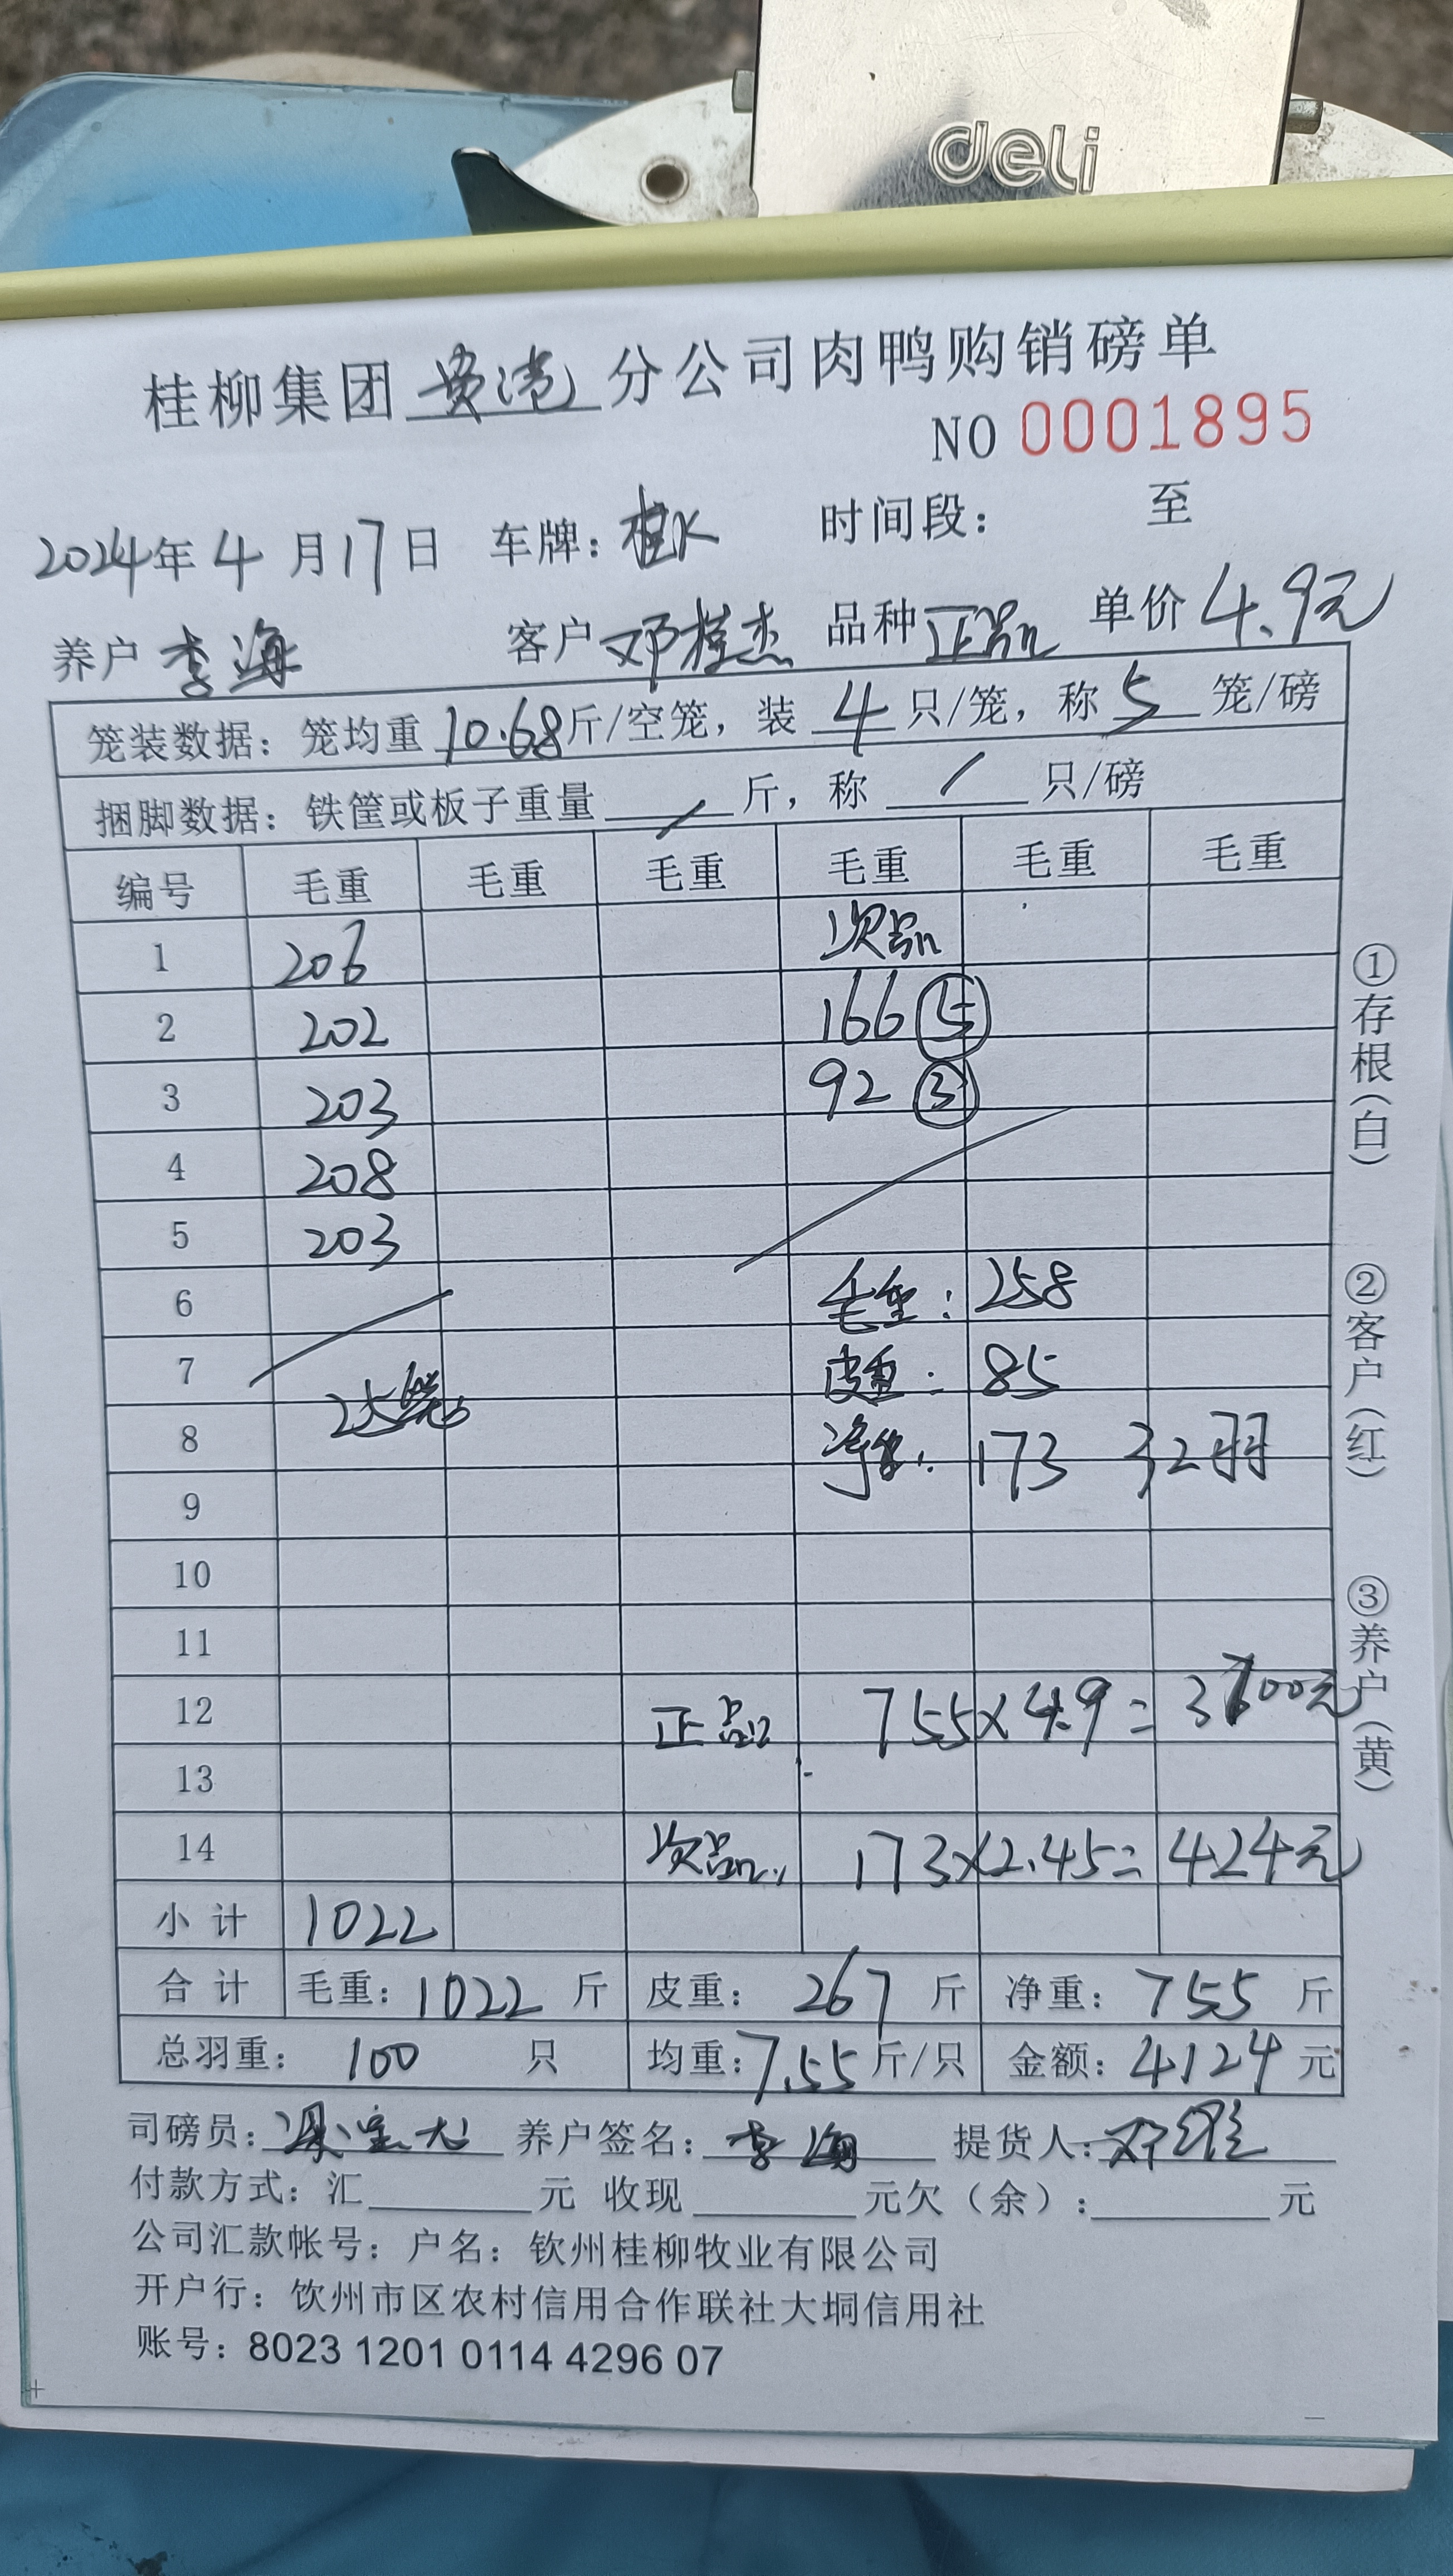 deli
桂柳集团贵港分公司肉鸭购销磅单
NO 0001895
2024年4月17日 车牌：桂K 时间段： 至
养户 李海 客户 邓桂杰 品种 正品 单价 4.9元
笼装数据：笼均重 10.68 斤/空笼，装 4 只/笼，称 5 笼/磅
捆脚数据：铁筐或板子重量 / 斤，称 / 只/磅
编号 毛重 毛重 毛重 毛重 毛重 毛重
1 206 次品
2 202 166 ⑤
3 203 92 ③
4 208
5 203
6 毛重：258
7 25笼 皮重：85
8 净重：173 32羽
9
10
11
12 正品 755×4.9=3700元
13
14 次品 173×2.45=424元
小计 1022
合计 毛重：1022 斤 皮重：267 斤 净重：755 斤
总羽重：100 只 均重：7.55 斤/只 金额：4124 元
司磅员： 养户签名：李海 提货人：
付款方式：汇 元 收现 元欠（余）： 元
公司汇款帐号：户名：钦州桂柳牧业有限公司
开户行：饮州市区农村信用合作联社大垌信用社
账号：8023 1201 0114 4296 07
①存根（白）
②客户（红）
③养户（黄）